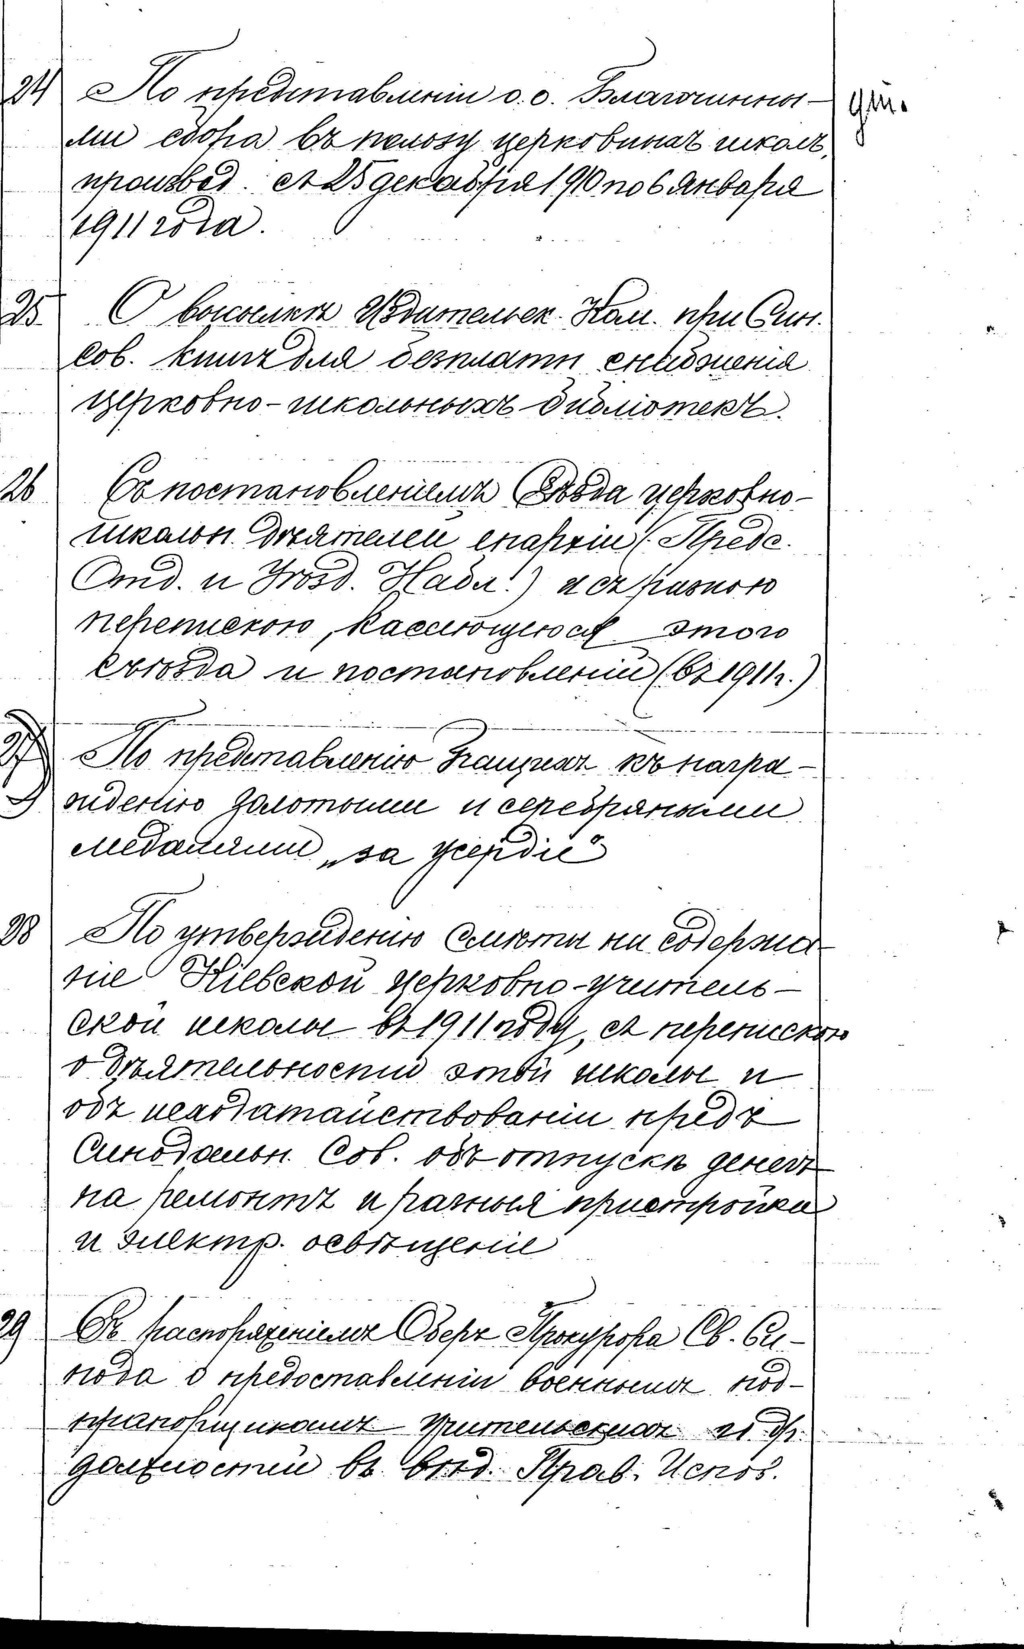 24 По представленiи о.о. Благочинны-
ми сбора въ пользу церковныхъ школъ,
произвед. съ 25 декабря 1910 по 6 Января
1911 года.
25 О высылкѣ Издательск. Ком. при Син.
Сов. книгъ для безплатн снабженiя
церковно-школьныхъ библiотекъ.
26 Съ постановленiемъ Съѣзда церковно-
школьн. дѣятелей епархiи (Предс.
Отд. и Уѣзд. Набл.) и съ разною
перепискою, касающеюся этого
съѣзда и постановленiи (въ 1911 г.)
27 По представленiю учащихъ къ награ-
жденiю золотыми и серебряными
медалями „за усердiе"
28 По утвержденiю смѣты на содержа-
нiе Кiевской церковно-учитель-
ской школы въ 1911 году, съ перепискою
о дѣятельности этой школы и
объ исходатайствованiи предъ
Синодальн. Сов. объ отпускѣ денегъ
на ремонтъ и разныя пристройки
и электр. освѣщенiе
29 Съ распоряженiемъ Оберъ Прокурора Св. Си-
нода о предоставленiи военнымъ под-
прапорщикамъ учительскихъ и др.
должностей въ вѣд. Прав. Испов.